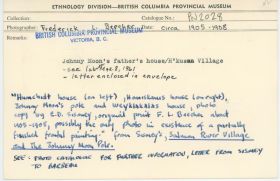 ETHNOLOGY DIVISION—BRITISH COLUMBIA PROVINCIAL MUSEUM
Collector
Catalogue No.: PN2028
Frederick L. Beecher
Circa 1905-1908
BRITISH COLUMBIA PROVINCIAL MUSEUM
VICTORIA, B.C.
Johnny Moon's father's house/H'Kusam Village
- see 8, 1961
- letter enclosed in envelope
house (on left), house (on right),
Johnny Moon's pole and house, photo
copy by E.D. Sismey, original print F.L. Beecher, about
1905-1908, possibly the only photo in existence of a partially
finished frontal painting." from Sismey's, Salmon River Village
and The Johnny Moon Pole.
SEE: PHOTO CATALOGUE FOR FURTHER INFORMATION, LETTER FROM SISMEY
TO